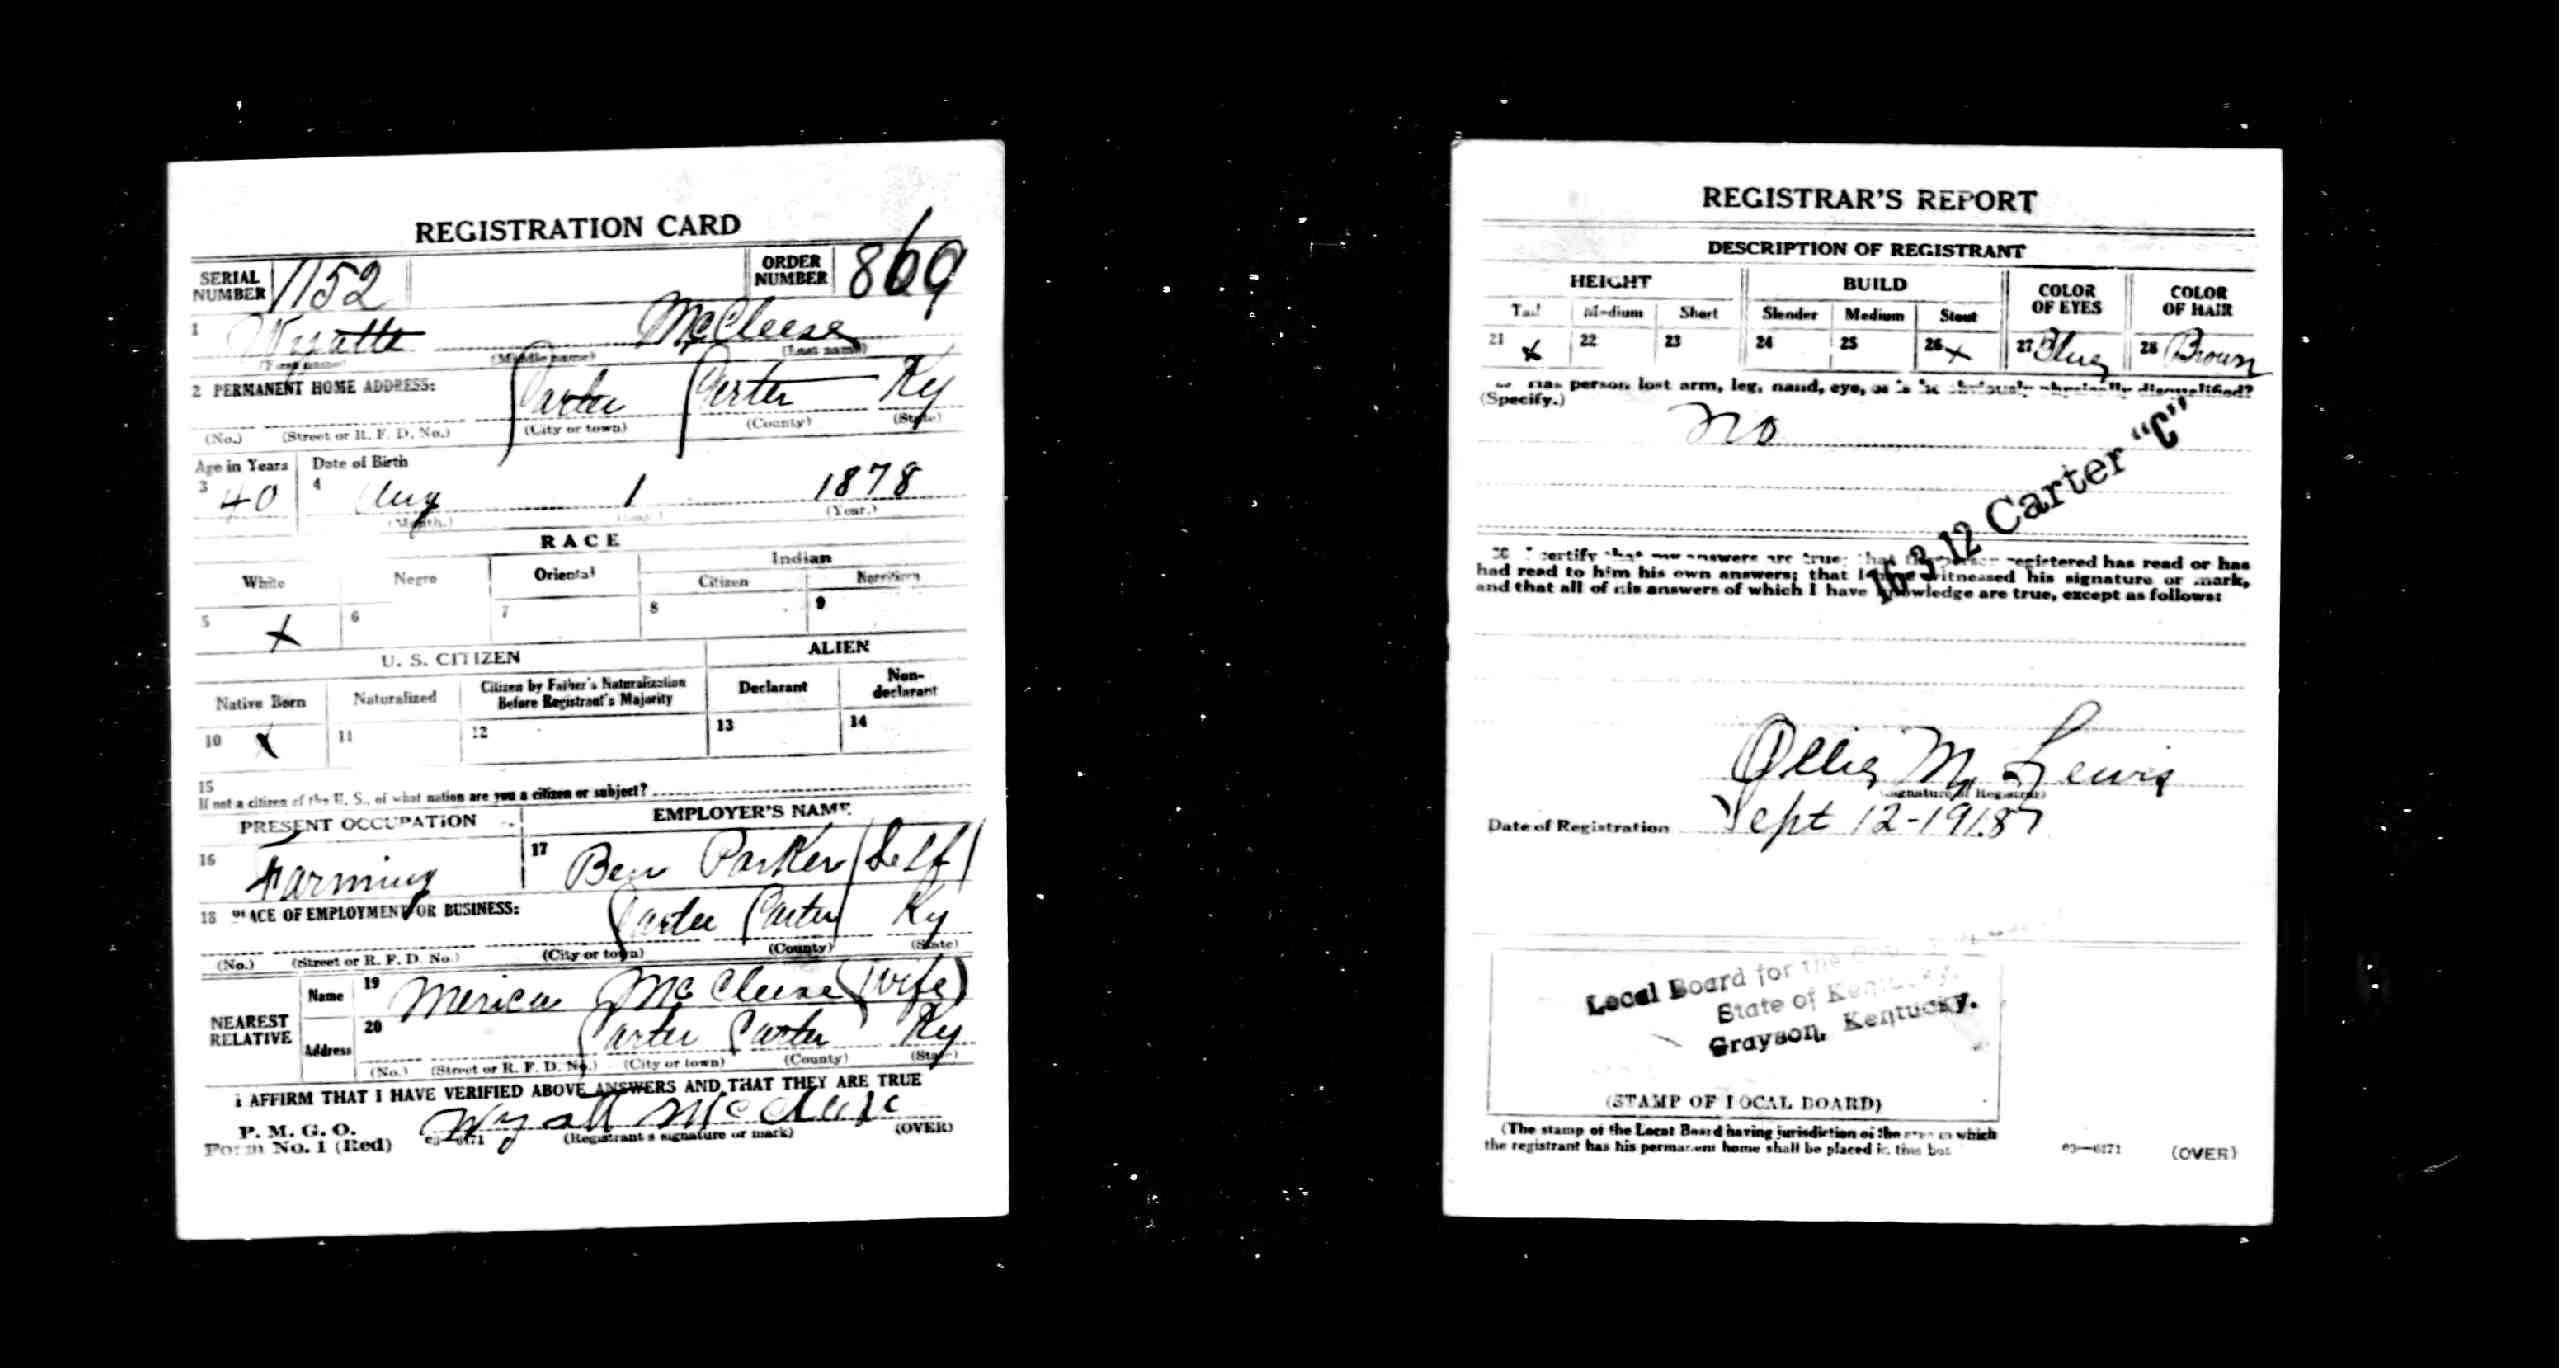 REGISTRATION CARD
SERIAL NUMBER 1152 ORDER NUMBER 869
1 Wyatte McCleese
(First name) (Middle name) (Last name)
2 PERMANENT HOME ADDRESS:
Carter Carter Ky
(No.) (Street or R. F. D. No.) (City or town) (County) (State)
Age in Years Date of Birth
3 40 4 Aug 1 1878
(Month.) (Day.) (Year.)
RACE
White Negro Oriental Indian
Citizen Noncitizen
5 X 6 7 8 9
U. S. CITIZEN ALIEN
Native Born Naturalized Citizen by Father's Naturalization Before Registrant's Majority Declarant Non-declarant
10 X 11 12 13 14
15
If not a citizen of the U. S., of what nation are you a citizen or subject?
PRESENT OCCUPATION EMPLOYER'S NAME
16 Farming 17 Ben Parker (Self)
18 PLACE OF EMPLOYMENT OR BUSINESS:
Carter Carter Ky
(No.) (Street or R. F. D. No.) (City or town) (County) (State)
NEAREST RELATIVE
Name 19 Merica McCleese (Wife)
Address 20 Carter Carter Ky
(No.) (Street or R. F. D. No.) (City or town) (County) (State)
I AFFIRM THAT I HAVE VERIFIED ABOVE ANSWERS AND THAT THEY ARE TRUE
P. M. G. O.
Form No. 1 (Red) 03—6171 Wyatt McCleese
(Registrant's signature or mark) (OVER)
REGISTRAR'S REPORT
DESCRIPTION OF REGISTRANT
HEIGHT BUILD COLOR OF EYES COLOR OF HAIR
Tall Medium Short Slender Medium Stout
21 X 22 23 24 25 26 X 27 Blue 28 Brown
29 Has person lost arm, leg, hand, eye, or is he obviously physically disqualified?
(Specify.)
No
16-3-12 Carter "C"
30 I certify that my answers are true; that the person registered has read or has
had read to him his own answers; that I have witnessed his signature or mark,
and that all of his answers of which I have knowledge are true, except as follows:
Ollie M Lewis
(Signature of Registrar)
Date of Registration Sept 12-1918
Local Board for the
State of Kentucky.
Grayson, Kentucky.
(STAMP OF LOCAL BOARD)
(The stamp of the Local Board having jurisdiction of the area in which
the registrant has his permanent home shall be placed in this box
03—6171 (OVER)